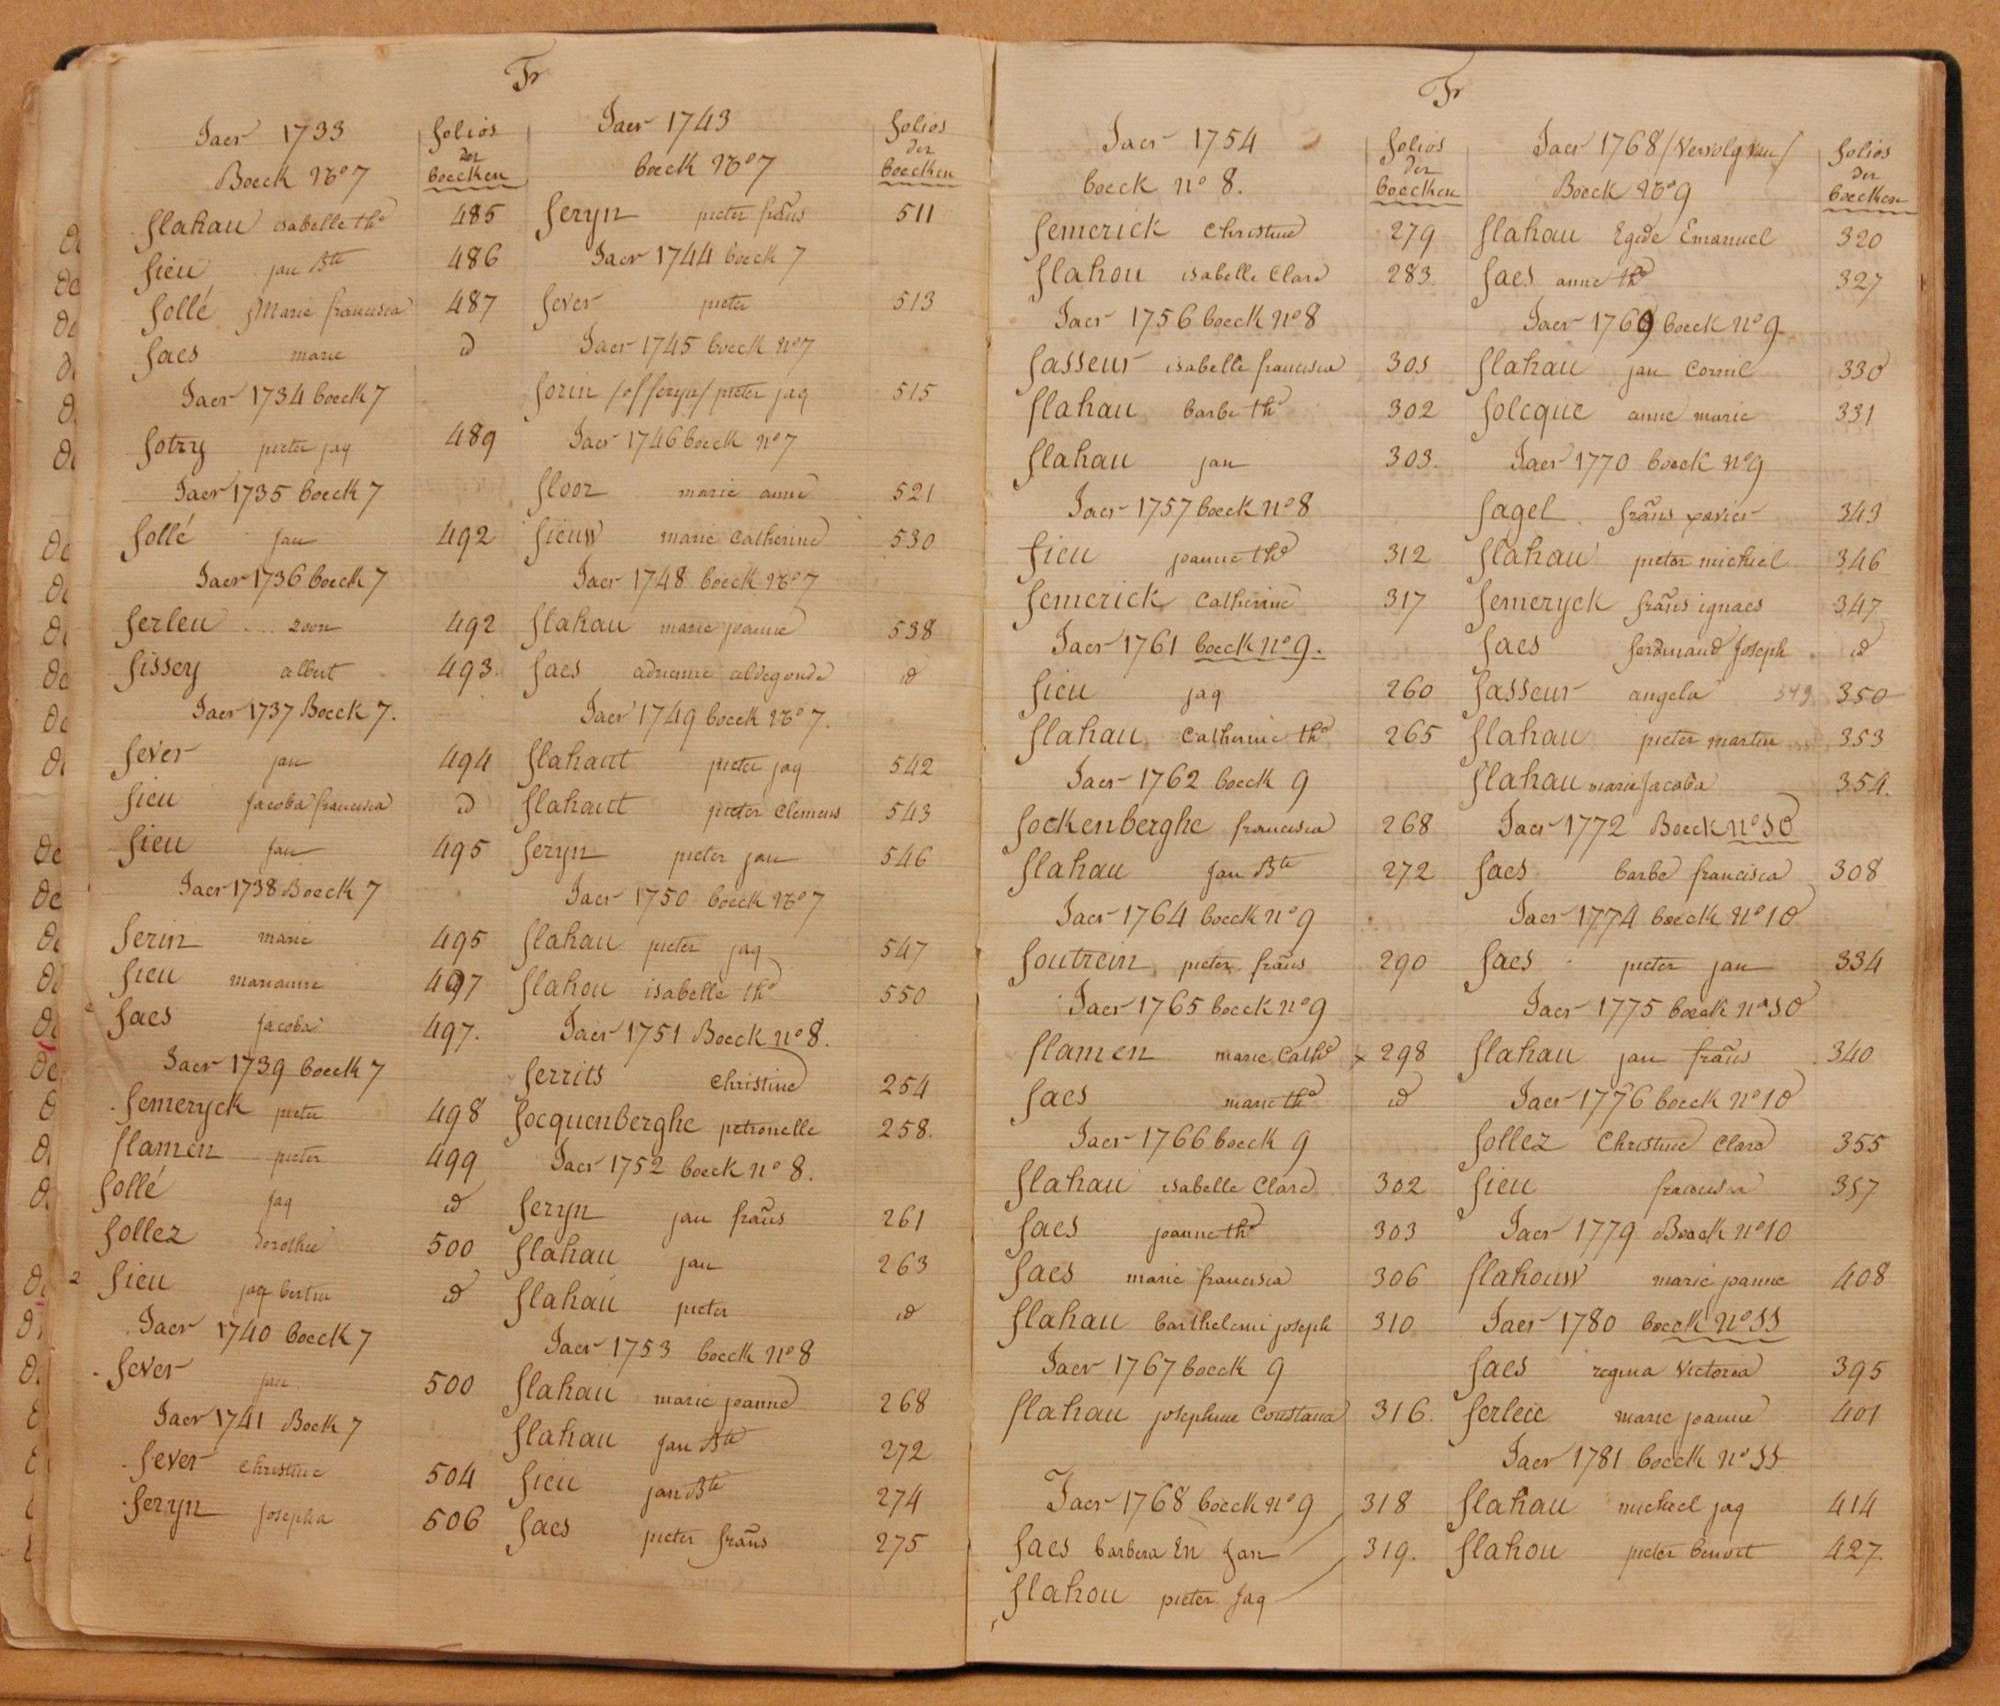 Fr
Jaer 1733
folios
der
boecken
Boeck No 7
flahau isabelle the 485
fieu jan Bte 486
follé Marie francisca 487
faes marie id
Jaer 1734 boeck 7
fotry pieter jaq 489
Jaer 1735 boeck 7
follé jan 492
Jaer 1736 boeck 7
ferleu zoon 492
fissey albert 493
Jaer 1737 Boeck 7.
fever jan 494
fieu Jacoba francisca id
fieu Jan 495
Jaer 1738 Boeck 7
ferin marie 495
fieu marianne 497
faes Jacoba 497.
Jaer 1739 boeck 7
femeryck pieter 498
flamen pieter 499
follé Jaq id
follez Dorothée 500
2 fieu jaq bertin id
Jaer 1740 boeck 7
fever jan 500
Jaer 1741 Bock 7
fever christine 504
feryn Josepha 506
Jaer 1743
folios
der
boecken
boeck No 7
feryn pieter frans 511
Jaer 1744 boeck 7
fever pieter 513
Jaer 1745 boeck no 7
forin /of feryn/ pieter jaq 515
Jaer 1746 boeck no 7
floor marie anne 521
fieuw marie Catherine 530
Jaer 1748 boeck No 7
flahau marie joanne 538
faes adrienne aldegonde id
Jaer 1749 boeck No 7.
flahaut pieter jaq 542
flahaut pieter Clemens 543
feryn pieter jan 546
Jaer 1750 boeck No 7
flahau pieter jaq 547
flahou isabelle the 550
Jaer 1751 Boeck no 8.
ferrits Christine 254
focquenberghe petronelle 258.
Jaer 1752 boeck no 8.
feryn jan frans 261
flahau jan 263
flahau pieter id
Jaer 1753 boeck no 8
flahau marie joanne 268
flahau Jan Bte 272
fieu jan Bte 274
faes pieter frans 275
Fr
Jaer 1754
folios
der
boecken
boeck no 8.
femerick Christine 279
flahou isabelle Clare 283.
Jaer 1756 boeck No 8
fasseur isabelle francisca 301
flahau barbe the 302
flahau jan 303.
Jaer 1757 boeck no 8
fieu joanne the 312
femerick Catherine 317
Jaer 1761 boeck no 9.
fieu jaq 260
flahau Catherine the 265
Jaer 1762 boeck 9
fockenberghe francisca 268
flahau Jan Bte 272
Jaer 1764 boeck no 9
foutrein pieter frans 290
Jaer 1765 boeck no 9
flamen marie Cathe x 298
faes marie the id
Jaer 1766 boeck 9
flahau isabelle Clare 302
faes joanne the 303
faes marie francisca 306
flahau barthelemi joseph 310
Jaer 1767 boeck 9
flahau josephine Constana 316.
Jaer 1768 boeck no 9 318
faes barbera En Jan 319.
flahou pieter Jaq
Jaer 1768 /Vervolg van/
folios
der
boecken
Boeck No 9
flahau Egide Emanuel 320
faes anne the 327
Jaer 1769 boeck No 9
flahau jan Cornil 330
folcque anne marie 331
Jaer 1770 boeck no 9
fagel frans xavier 343
flahau pieter michiel 346
femeryck frans ignaes 347
faes ferdinand Joseph id
fasseur angela 349 350
flahau pieter martin 353
flahau marie Jacoba 354.
Jaer 1772 Boeck no 10
faes barbe francisca 308
Jaer 1774 boeck No 10
faes pieter jan 334
Jaer 1775 boeck no 10
flahau jan frans 340
Jaer 1776 boeck no 10
follez Christine Clara 355
fieu francisca 357
Jaer 1779 Boeck No 10
flahouw marie joanne 408
Jaer 1780 boeck No 11
faes regina Victoria 395
ferleie marie joanne 401
Jaer 1781 boeck No 11
flahau michiel jaq 414
flahou pieter benoit 427.